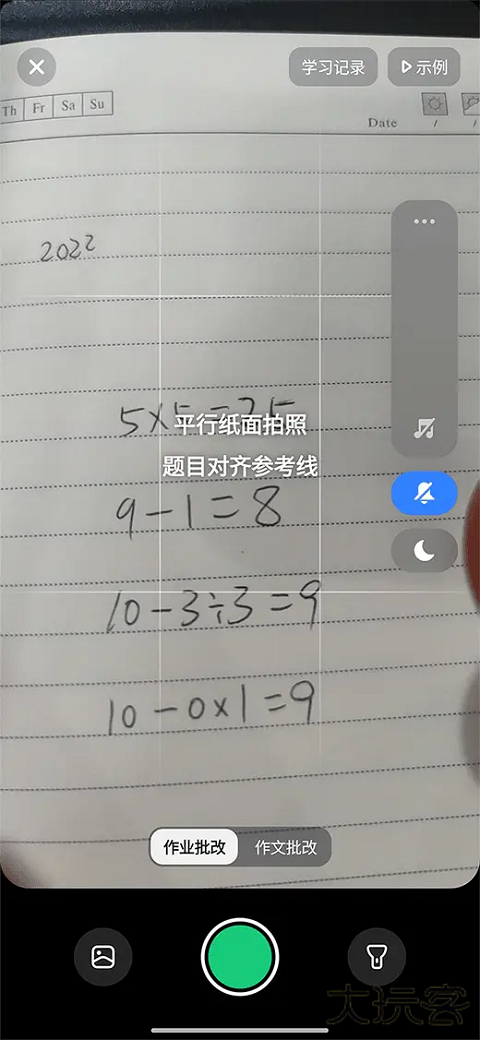 学习记录
示例
Th Fr Sa Su
Date / /
2022
5×5=25
平行纸面拍照
题目对齐参考线
9-1=8
10-3÷3=9
10-0×1=9
作业批改 作文批改
大玩客